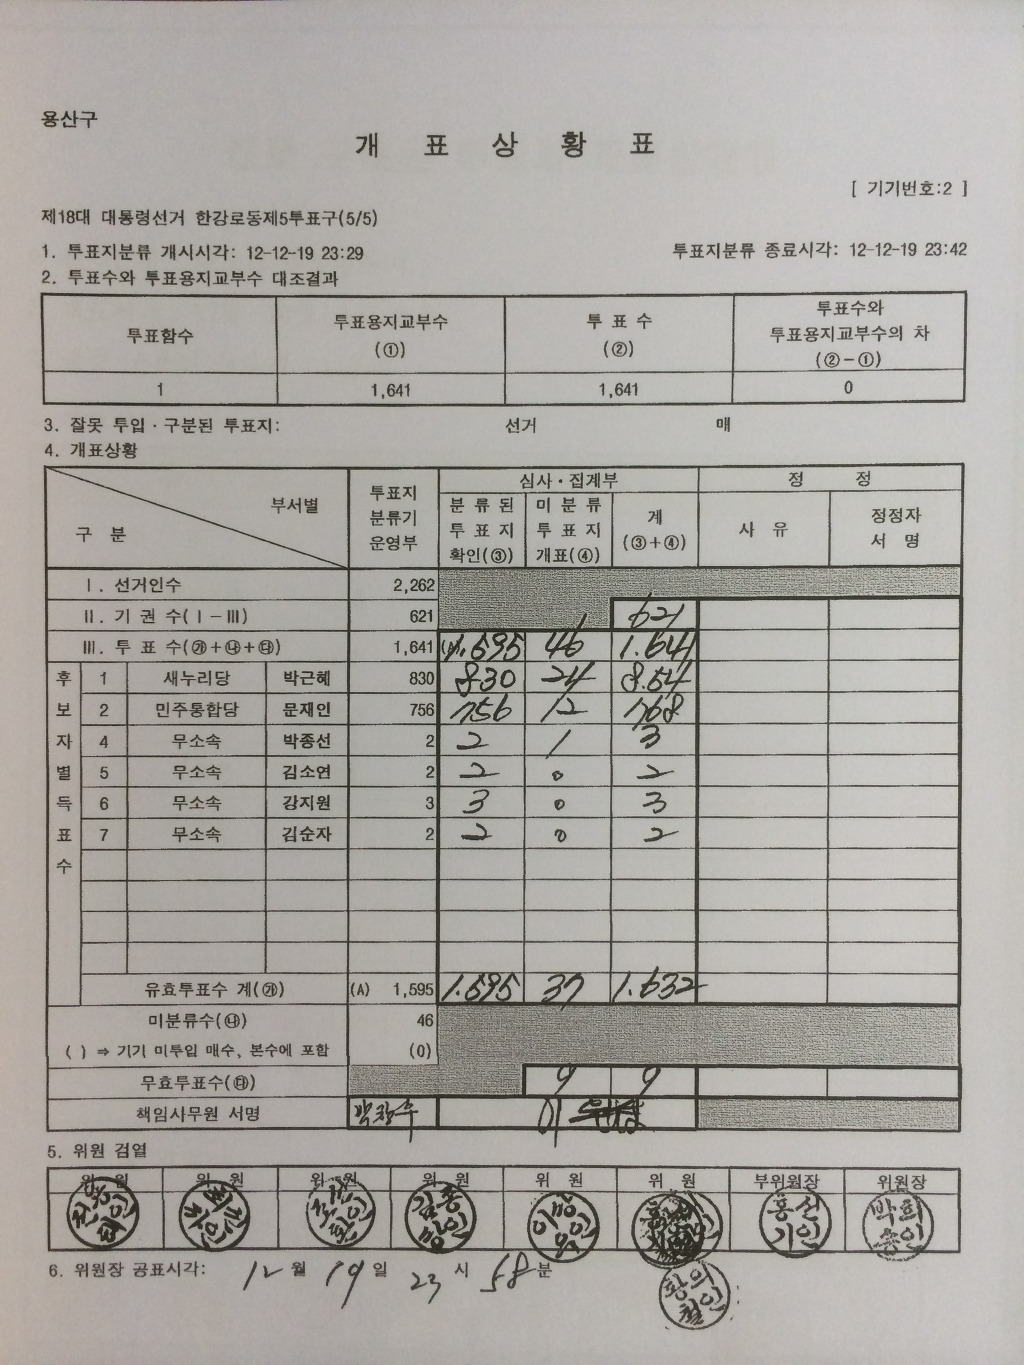 용산구
개 표 상 황 표
[ 기기번호:2 ]
제18대 대통령선거 한강로동제5투표구(5/5)
1. 투표지분류 개시시각: 12-12-19 23:29 투표지분류 종료시각: 12-12-19 23:42
2. 투표수와 투표용지교부수 대조결과
투표함수 투표용지교부수 (①) 투 표 수 (②) 투표수와 투표용지교부수의 차 (②-①)
1 1,641 1,641 0
3. 잘못 투입·구분된 투표지: 선거 매
4. 개표상황
구 분 부서별 투표지 분류기 운영부 심사·집계부 정 정
분 류 된 투 표 지 확인(③) 미 분 류 투 표 지 개표(④) 계 (③+④) 사 유 정정자 서 명
Ⅰ. 선거인수 2,262
Ⅱ. 기 권 수(Ⅰ-Ⅲ) 621 621
Ⅲ. 투 표 수(㉮+㉯+㉰) 1,641 (A) 1.595 46 1.641
후보자별득표수
1 새누리당 박근혜 830 830 24 8.54
2 민주통합당 문재인 756 756 12 768
4 무소속 박종선 2 2 1 3
5 무소속 김소연 2 2 0 2
6 무소속 강지원 3 3 0 3
7 무소속 김순자 2 2 0 2
유효투표수 계(㉮) (A) 1,595 1.595 37 1.632
미분류수(㉯) 46
( ) ⇒ 기기 미투입 매수, 본수에 포함 (0)
무효투표수(㉰) 9 9
책임사무원 서명
5. 위원 검열
위 원 위 원 위 원 위 원 위 원 위 원 부위원장 위원장
6. 위원장 공표시각: 12 월 19 일 23 시 58 분